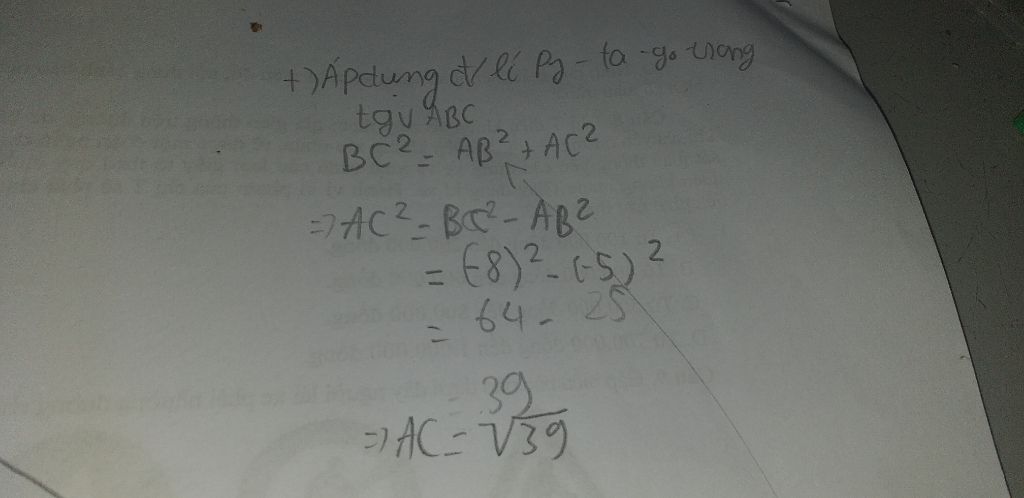 +) Áp dụng đ/lí Py-ta-go trong
tgv ABC
BC² = AB² + AC²
=> AC² = BC² - AB²
= (-8)² - (-5)²
= 64 - 25
= 39
=> AC = √39